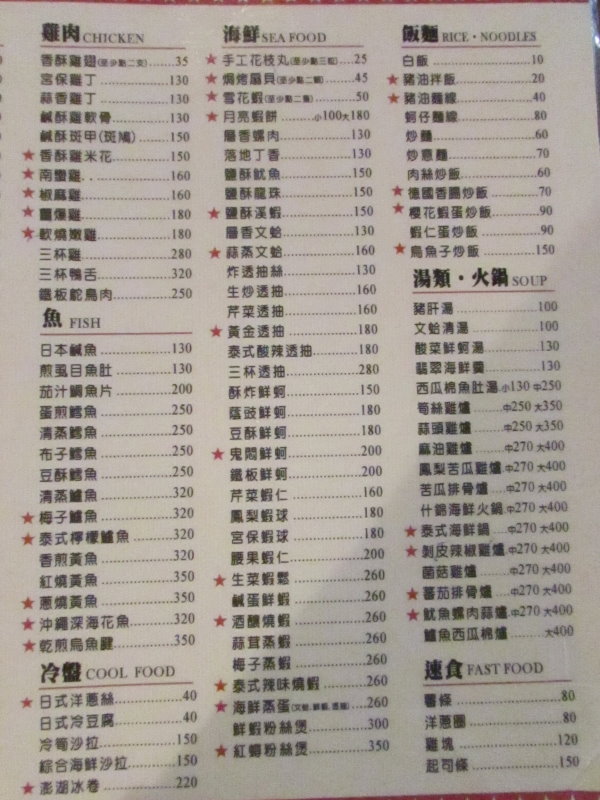 雞肉 CHICKEN
香酥雞翅(至少點二支) 35
宮保雞丁 130
蒜香雞丁 130
鹹酥雞軟骨 130
鹹酥斑甲(斑鳩) 150
★ 香酥雞米花 150
★ 南蠻雞 160
★ 椒麻雞 160
★ 醬爆雞 180
★ 軟燒嫩雞 180
三杯雞 280
三杯鴨舌 320
鐵板鴕鳥肉 250
魚 FISH
日本鹹魚 130
煎虱目魚肚 130
茄汁鯛魚片 200
蛋煎鱈魚 250
清蒸鱈魚 250
布子鱈魚 250
豆酥鱈魚 250
清蒸鱸魚 320
★ 梅子鱸魚 320
★ 泰式檸檬鱸魚 320
香煎黃魚 320
紅燒黃魚 350
★ 蔥燒黃魚 350
★ 沖繩深海花魚 320
★ 乾煎烏魚鰎 350
冷盤 COOL FOOD
★ 日式洋蔥絲 40
日式冷豆腐 40
冷筍沙拉 150
綜合海鮮沙拉 150
★ 澎湖冰卷 220
海鮮 SEA FOOD
★ 手工花枝丸(至少點三粒) 25
★ 焗烤扇貝(至少點二顆) 45
★ 雪花蝦(至少點二隻) 50
★ 月亮蝦餅 小100大180
層香螺肉 130
落地丁香 130
鹽酥魷魚 150
鹽酥龍珠 150
★ 鹽酥溪蝦 150
層香文蛤 130
★ 蒜蒸文蛤 160
炸透抽絲 130
生炒透抽 160
芹菜透抽 160
★ 黃金透抽 180
泰式酸辣透抽 180
三杯透抽 280
酥炸鮮蚵 150
蔭豉鮮蚵 180
豆酥鮮蚵 180
★ 鬼悶鮮蚵 200
鐵板鮮蚵 200
芹菜蝦仁 160
鳳梨蝦球 180
宮保蝦球 180
腰果蝦仁 200
★ 生菜蝦鬆 260
鹹蛋鮮蝦 260
★ 酒釀燒蝦 260
蒜茸蒸蝦 260
梅子蒸蝦 260
★ 泰式辣味燒蝦 260
★ 海鮮蒸蛋(文蛤.鮮蝦.透抽) 260
鮮蝦粉絲煲 300
★ 紅蟳粉絲煲 350
飯麵 RICE・NOODLES
白飯 10
★ 豬油拌飯 20
★ 豬油麵線 40
蚵仔麵線 80
炒麵 60
炒意麵 70
肉絲炒飯 60
★ 德國香腸炒飯 70
★ 櫻花蝦蛋炒飯 90
蝦仁蛋炒飯 90
★ 烏魚子炒飯 150
湯類・火鍋 SOUP
豬肝湯 100
文蛤清湯 100
酸菜鮮蚵湯 130
翡翠海鮮羹 130
西瓜棉魚肚湯 小130 中250
筍絲雞爐 中250 大350
蒜頭雞爐 中250 大350
麻油雞爐 中270 大400
鳳梨苦瓜雞爐 中270 大400
苦瓜排骨爐 中270 大400
什錦海鮮火鍋 中270 大400
★ 泰式海鮮鍋 中270 大400
★ 剝皮辣椒雞爐 中270 大400
菌菇雞爐 中270 大400
★ 蕃茄排骨爐 中270 大400
★ 魷魚螺肉蒜爐 中270 大400
鱸魚西瓜棉爐 大400
速食 FAST FOOD
薯條 80
洋蔥圈 80
雞塊 120
起司條 150